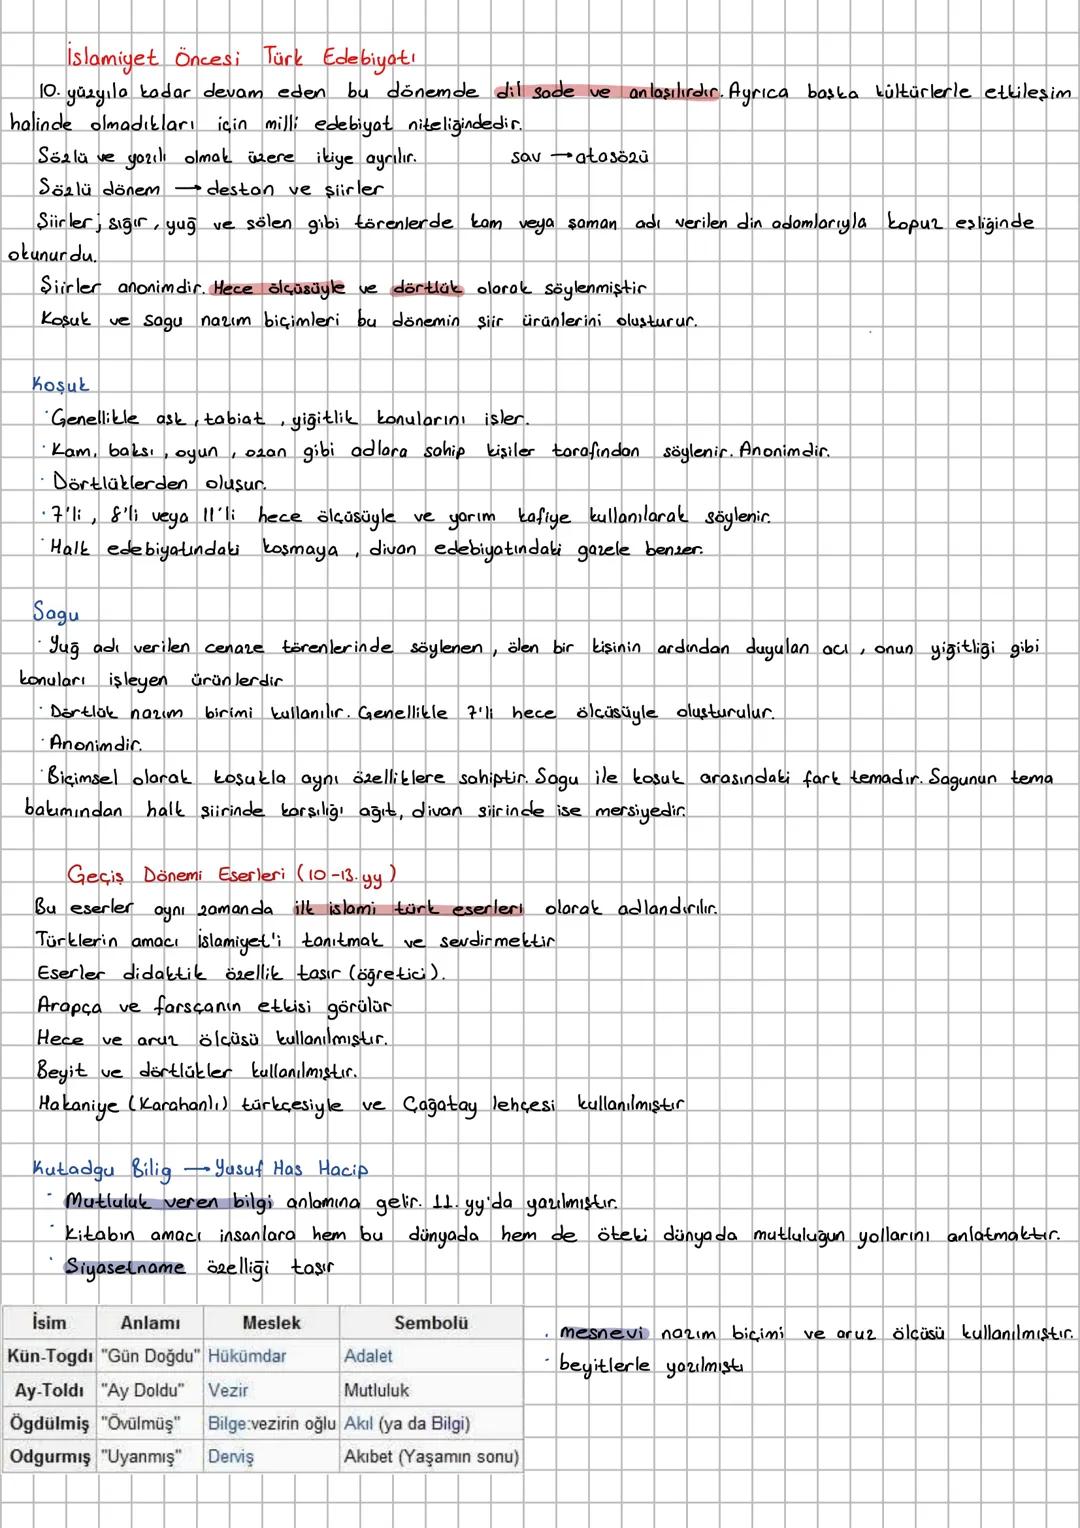 İslamiyet Öncesi Türk Edebiyatı
10. yüzyıla kadar devam eden bu dönemde dil sade ve anlaşılırdır. Ayrıca başka kültürlerle etkileşim
halinde olmadıkları için milli edebiyat niteliğindedir.
Sözlü ve yazılı olmak üzere ikiye ayrılır. sav → atasözü
Sözlü dönem → destan ve şiirler
Şiirler; sığır, yuğ ve şölen gibi törenlerde kam veya şaman adı verilen din adamlarıyla kopuz eşliğinde
okunurdu.
Şiirler anonimdir. Hece ölçüsüyle ve dörtlük olarak söylenmiştir
Koşuk ve sagu nazım biçimleri bu dönemin şiir ürünlerini oluşturur.
Koşuk
· Genellikle aşk, tabiat, yiğitlik konularını işler.
· Kam, baksı, oyun, ozan gibi adlara sahip kişiler tarafından söylenir. Anonimdir.
· Dörtlüklerden oluşur.
· 7'li, 8'li veya 11'li hece ölçüsüyle ve yarım kafiye kullanılarak söylenir.
· Halk edebiyatındaki koşmaya, divan edebiyatındaki gazele benzer.
Sagu
· Yuğ adı verilen cenaze törenlerinde söylenen, ölen bir kişinin ardından duyulan acı, onun yiğitliği gibi
konuları işleyen ürünlerdir
· Dörtlük nazım birimi kullanılır. Genellikle 7'li hece ölçüsüyle oluşturulur.
· Anonimdir.
· Biçimsel olarak koşukla aynı özelliklere sahiptir. Sagu ile koşuk arasındaki fark temadır. Sagunun tema
bakımından halk şiirinde karşılığı ağıt, divan şiirinde ise mersiyedir.
Geçiş Dönemi Eserleri (10-13.yy)
Bu eserler aynı zamanda ilk islami türk eserleri olarak adlandırılır.
Türklerin amacı İslamiyet'i tanıtmak ve sevdirmektir
Eserler didaktik özellik taşır (öğretici).
Arapça ve farsçanın etkisi görülür
Hece ve aruz ölçüsü kullanılmıştır.
Beyit ve dörtlükler kullanılmıştır.
Hakaniye (Karahanlı) türkçesiyle ve Çağatay lehçesi kullanılmıştır
Kutadgu Bilig → Yusuf Has Hacip
· Mutluluk veren bilgi anlamına gelir. 11. yy'da yazılmıştır.
· Kitabın amacı insanlara hem bu dünyada hem de öteki dünyada mutluluğun yollarını anlatmaktır.
· Siyasetname özelliği taşır
İsim Anlamı Meslek Sembolü
Kün-Togdı "Gün Doğdu" Hükümdar Adalet
Ay-Toldı "Ay Doldu" Vezir Mutluluk
Ögdülmiş "Övülmüş" Bilge:vezirin oğlu Akıl (ya da Bilgi)
Odgurmış "Uyanmış" Derviş Akıbet (Yaşamın sonu)
· mesnevi nazım biçimi ve aruz ölçüsü kullanılmıştır.
· beyitlerle yazılmıştı